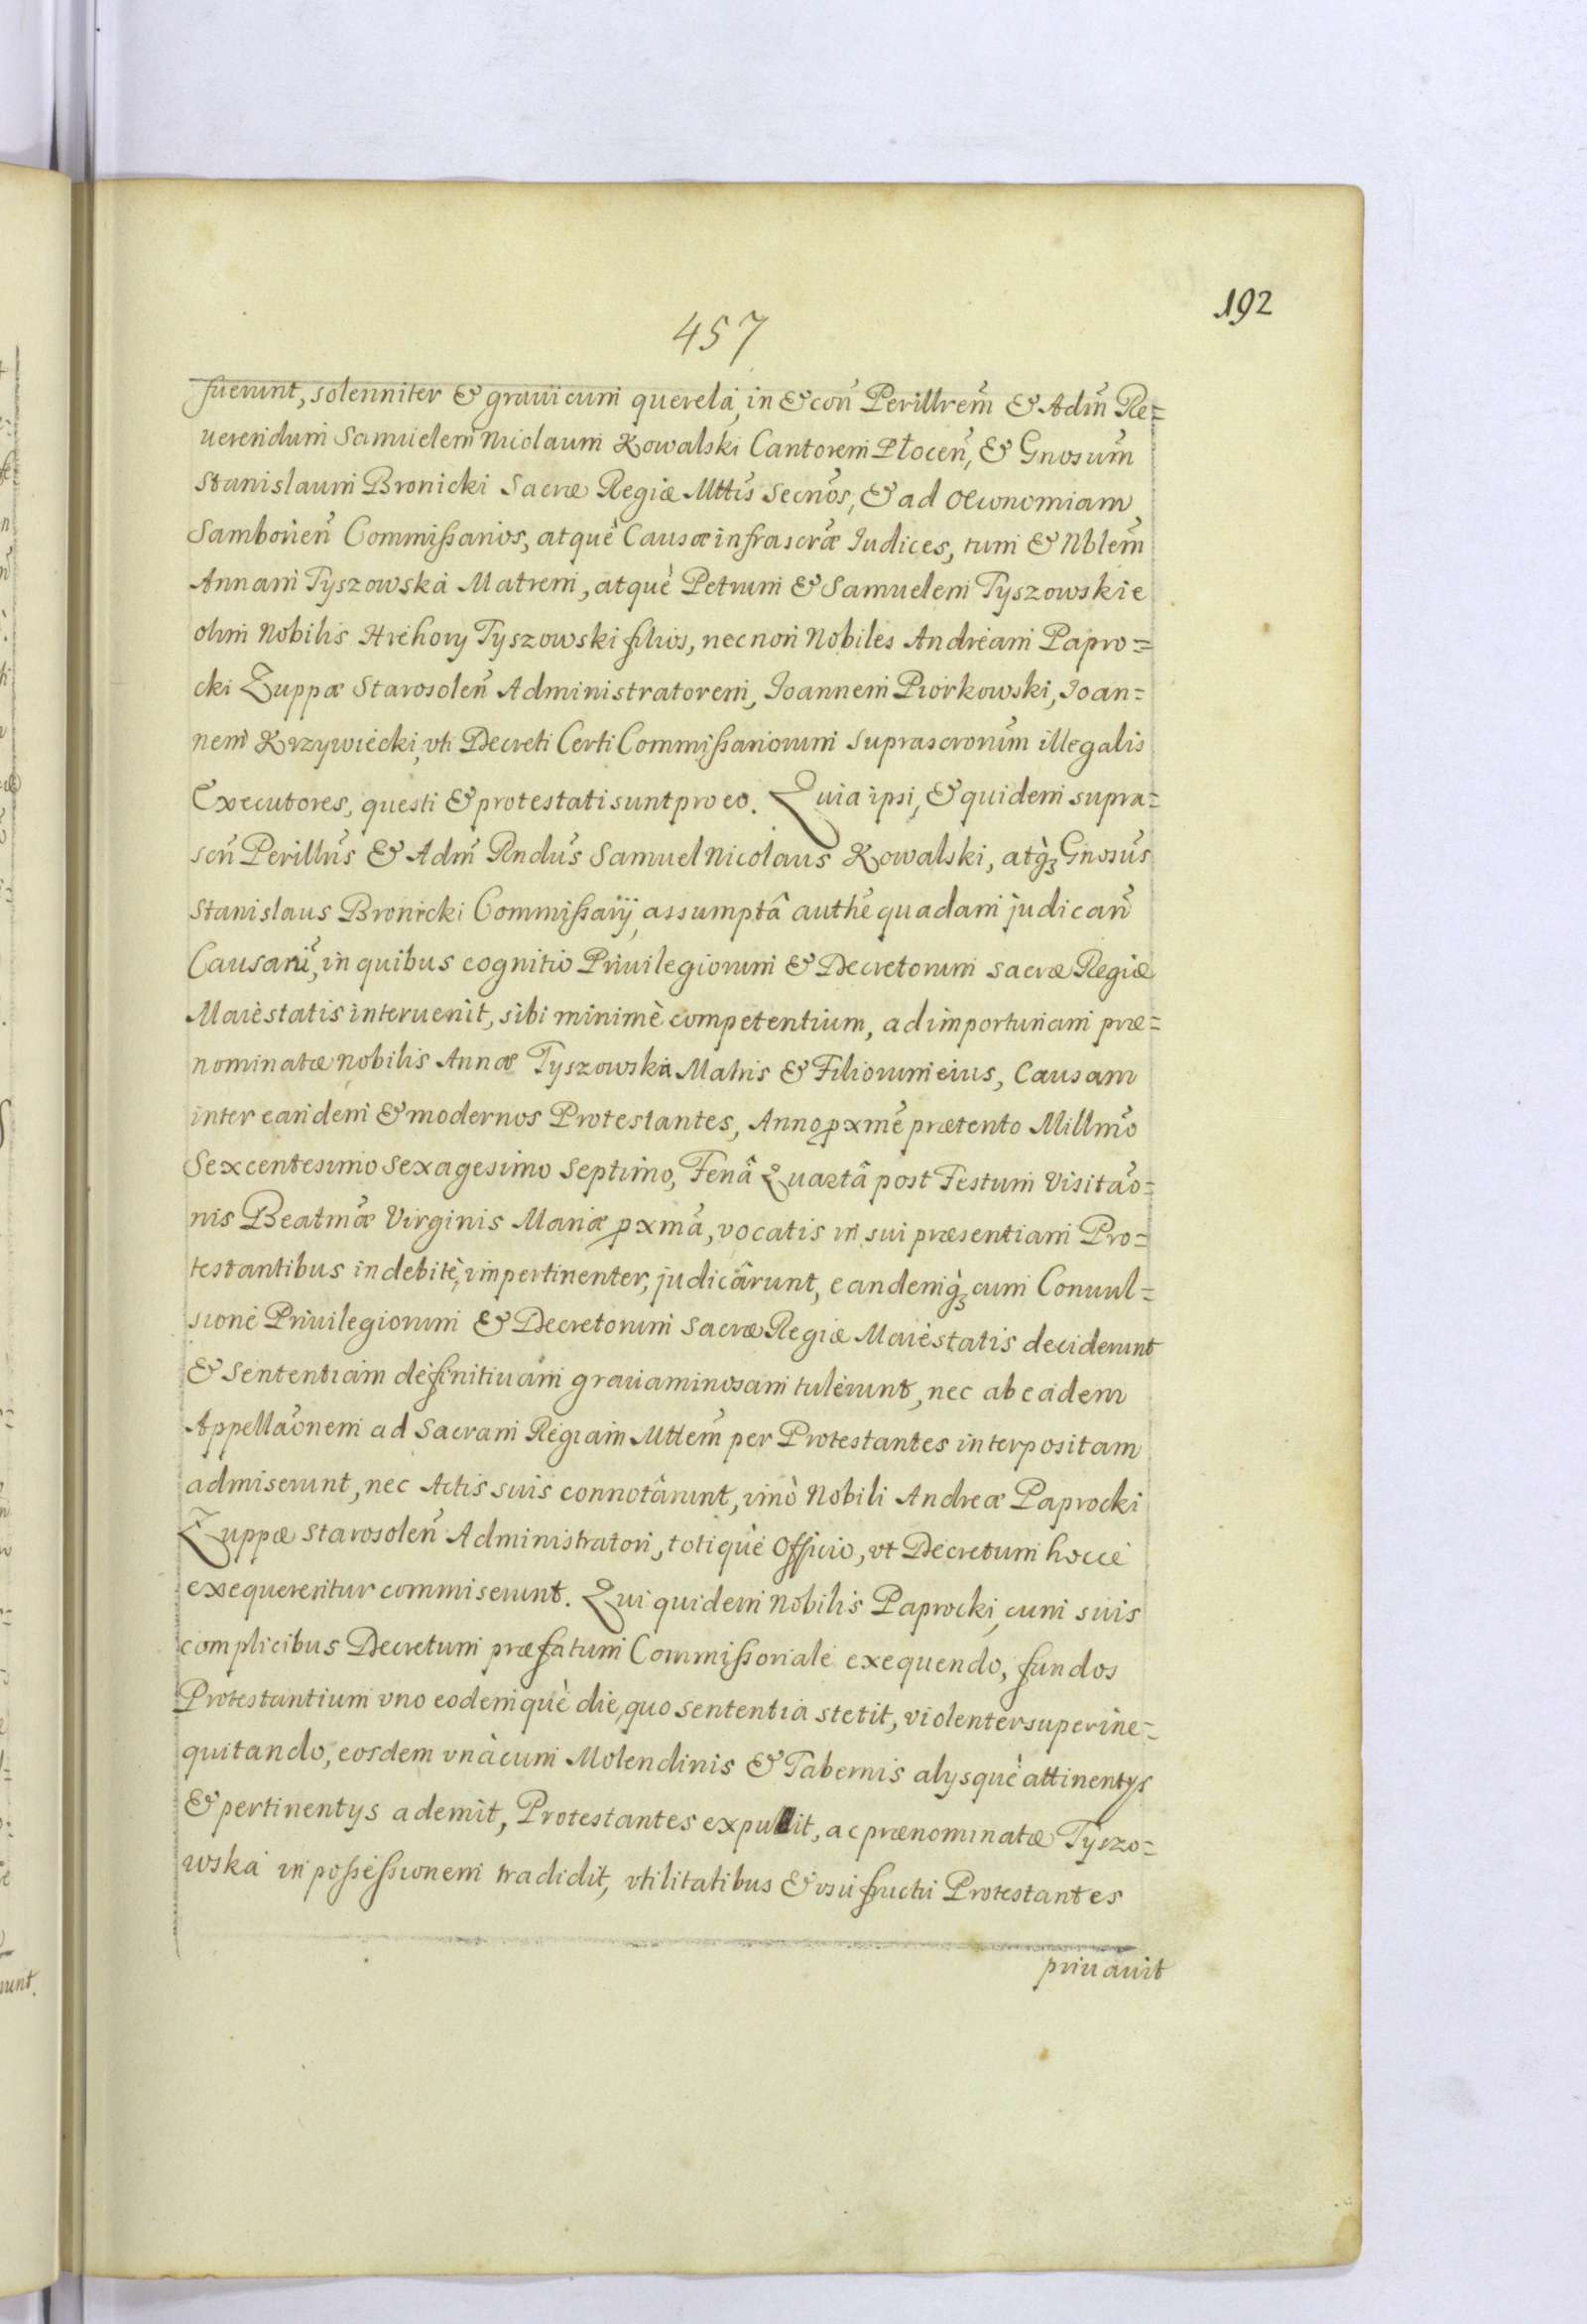 192
457
fuerunt, solenniter & graui cum querela, in & con̄ Perillrem̄ & Adm̄ Re=
uerendum Samuelem Nicolaum Kowalski Cantorem Płocen̄, & Gnosum̄
Stanislaum Bronicki Sacræ Regiæ Mttis̄ Secrios̄, & ad Oeconomiam
Samborien̄ Commissarios, atquè Causæ infrascrǣ Iudices, tum & Nblem̄
Annam Tyszowska Matrem, atquè Petrum & Samuelem Tyszowskie
olim Nobilis Hrehory Tyszowski filios, necnon Nobiles Andream Papro=
cki Zuppæ Starosolen̄ Administratorem, Ioannem Piorkowski, Ioan=
nem Krzywiecki, vti Decreti Certi Commissariorum suprascrorum̄ illegalis
Executores, questi & protestati sunt pro eo. Quia ipsi, & quidem supra=
scr̄i Perillrīs & Adm̄ Rndūs Samuel Nicolaus Kowalski, atq̀ꝫ Gnosūs
Stanislaus Bronicki Commissarij, assumptâ authē quadam judican̄
Causarū, in quibus cognitio Priuilegiorum & Decretorum Sacræ Regiæ
Maiestatis interuenit, sibi minimè competentium, ad importunam præ=
nominatæ nobilis Annæ Tyszowska Matris & Filiorum eius, Causam
inter eandem & modernos Protestantes, Anno pxmē prætento Millmō
Sexcentesimo Sexagesimo Septimo, Feriâ Quartâ post Festum Visitaō=
nis Beatmǣ Virginis Mariæ pxmā, vocatis in sui præsentiam Pro=
testantibus indebitè, impertinenter, judicârunt, eandemq̀ꝫ cum Conuul=
sione Priuilegiorum & Decretorum Sacræ Regiæ Maiestatis deciderunt
& Sententiam definitiuam grauaminosam tulerunt, nec ab eadem
Appellaōnem ad Sacram Regiam Mttem̄ per Protestantes interpositam
admiserunt, nec Actis suis connotârunt, imò Nobili Andreæ Paprocki
Zuppæ Starosolen̄ Administratori, totiquè Officio, vt Decretum hocce
exequerentur commiserunt. Qui quidem Nobilis Paprocki, cum suis
complicibus Decretum præfatum Commissoriale exequendo, fundos
Protestantium vno eodemquè die, quo sententia stetit, violenter superine=
quitando, eosdem vnàcum Molendinis & Tabernis alysquè attinentys
& pertinentys ademit, Protestantes expulit, ac prænominatæ Tyszo=
wska in possessionem tradidit, vtilitatibus & vsufructu Protestantes
priuauit